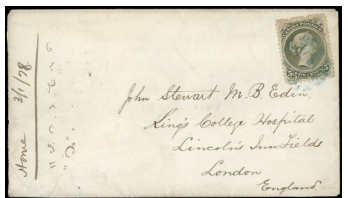 Home 3/1/78
John Stewart M.B. Edin.
King's College Hospital
Lincoln's Inn Fields
London
England.
5 5